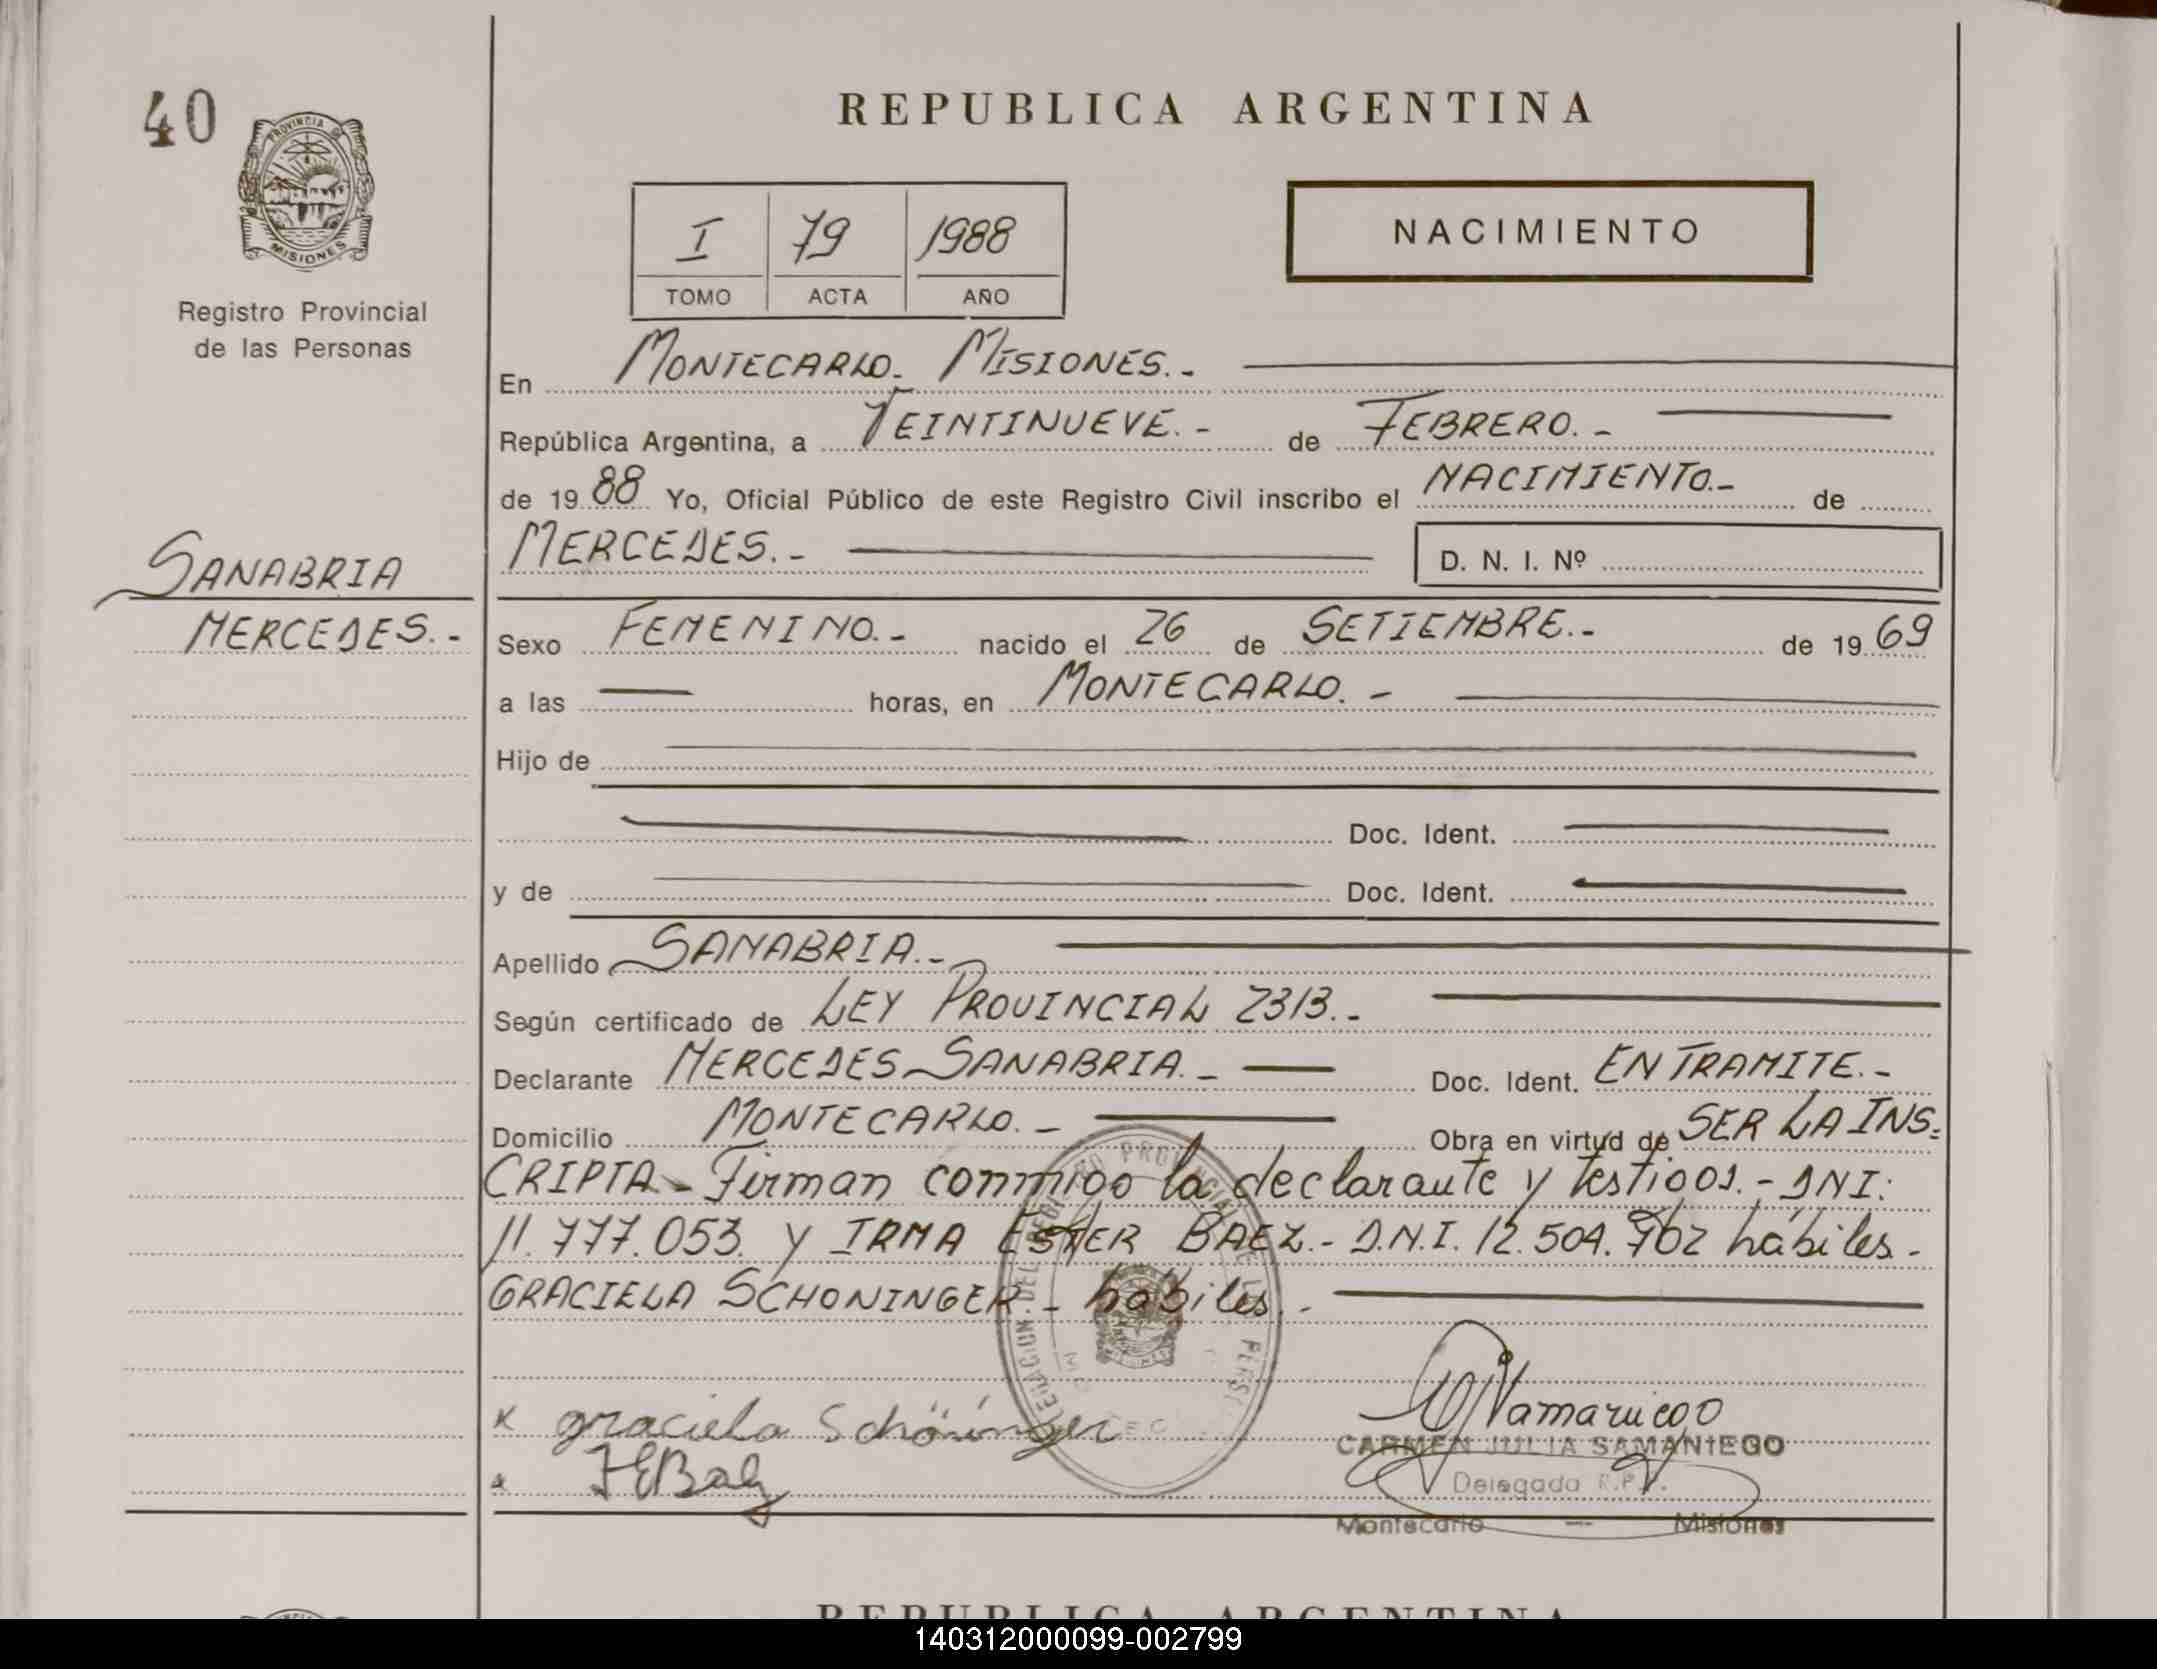 40
REPUBLICA ARGENTINA
PROVINCIA DE
MISIONES
Registro Provincial
de las Personas
I 79 1988
TOMO ACTA AÑO
NACIMIENTO
En MONTECARLO. MISIONES.-
República Argentina, a VEINTINUEVE.- de FEBRERO.-
de 19 88 Yo, Oficial Público de este Registro Civil inscribo el NACIMIENTO.- de
MERCEDES.- D. N. I. Nº
SANABRIA
MERCEDES.-
Sexo FEMENINO.- nacido el 26 de SETIEMBRE.- de 19 69
a las — horas, en MONTECARLO.-
Hijo de
Doc. Ident.
y de Doc. Ident.
Apellido SANABRIA.-
Según certificado de LEY PROVINCIAL 2313.-
Declarante MERCEDES SANABRIA.- Doc. Ident. EN TRAMITE.-
Domicilio MONTECARLO.- Obra en virtud de SER LA INS-
CRIPTA- Firman conmigo la declarante y testigos.- DNI:
11.777.053. y IRMA ESTER BAEZ.- D.N.I. 12.504.902 hábiles.-
GRACIELA SCHONINGER.- habiles.-
x graciela Schöninger
x IEBaez
CARMEN JULIA SAMANIEGO
Delegada R.P.P.
Montecarlo — Misiones
REPUBLICA ARGENTINA
140312000099-002799